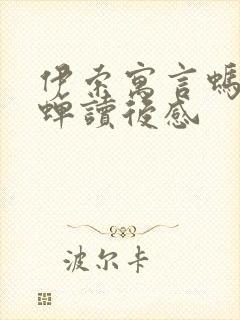 伊索寓言螞
蟬讀後感
波尔卡